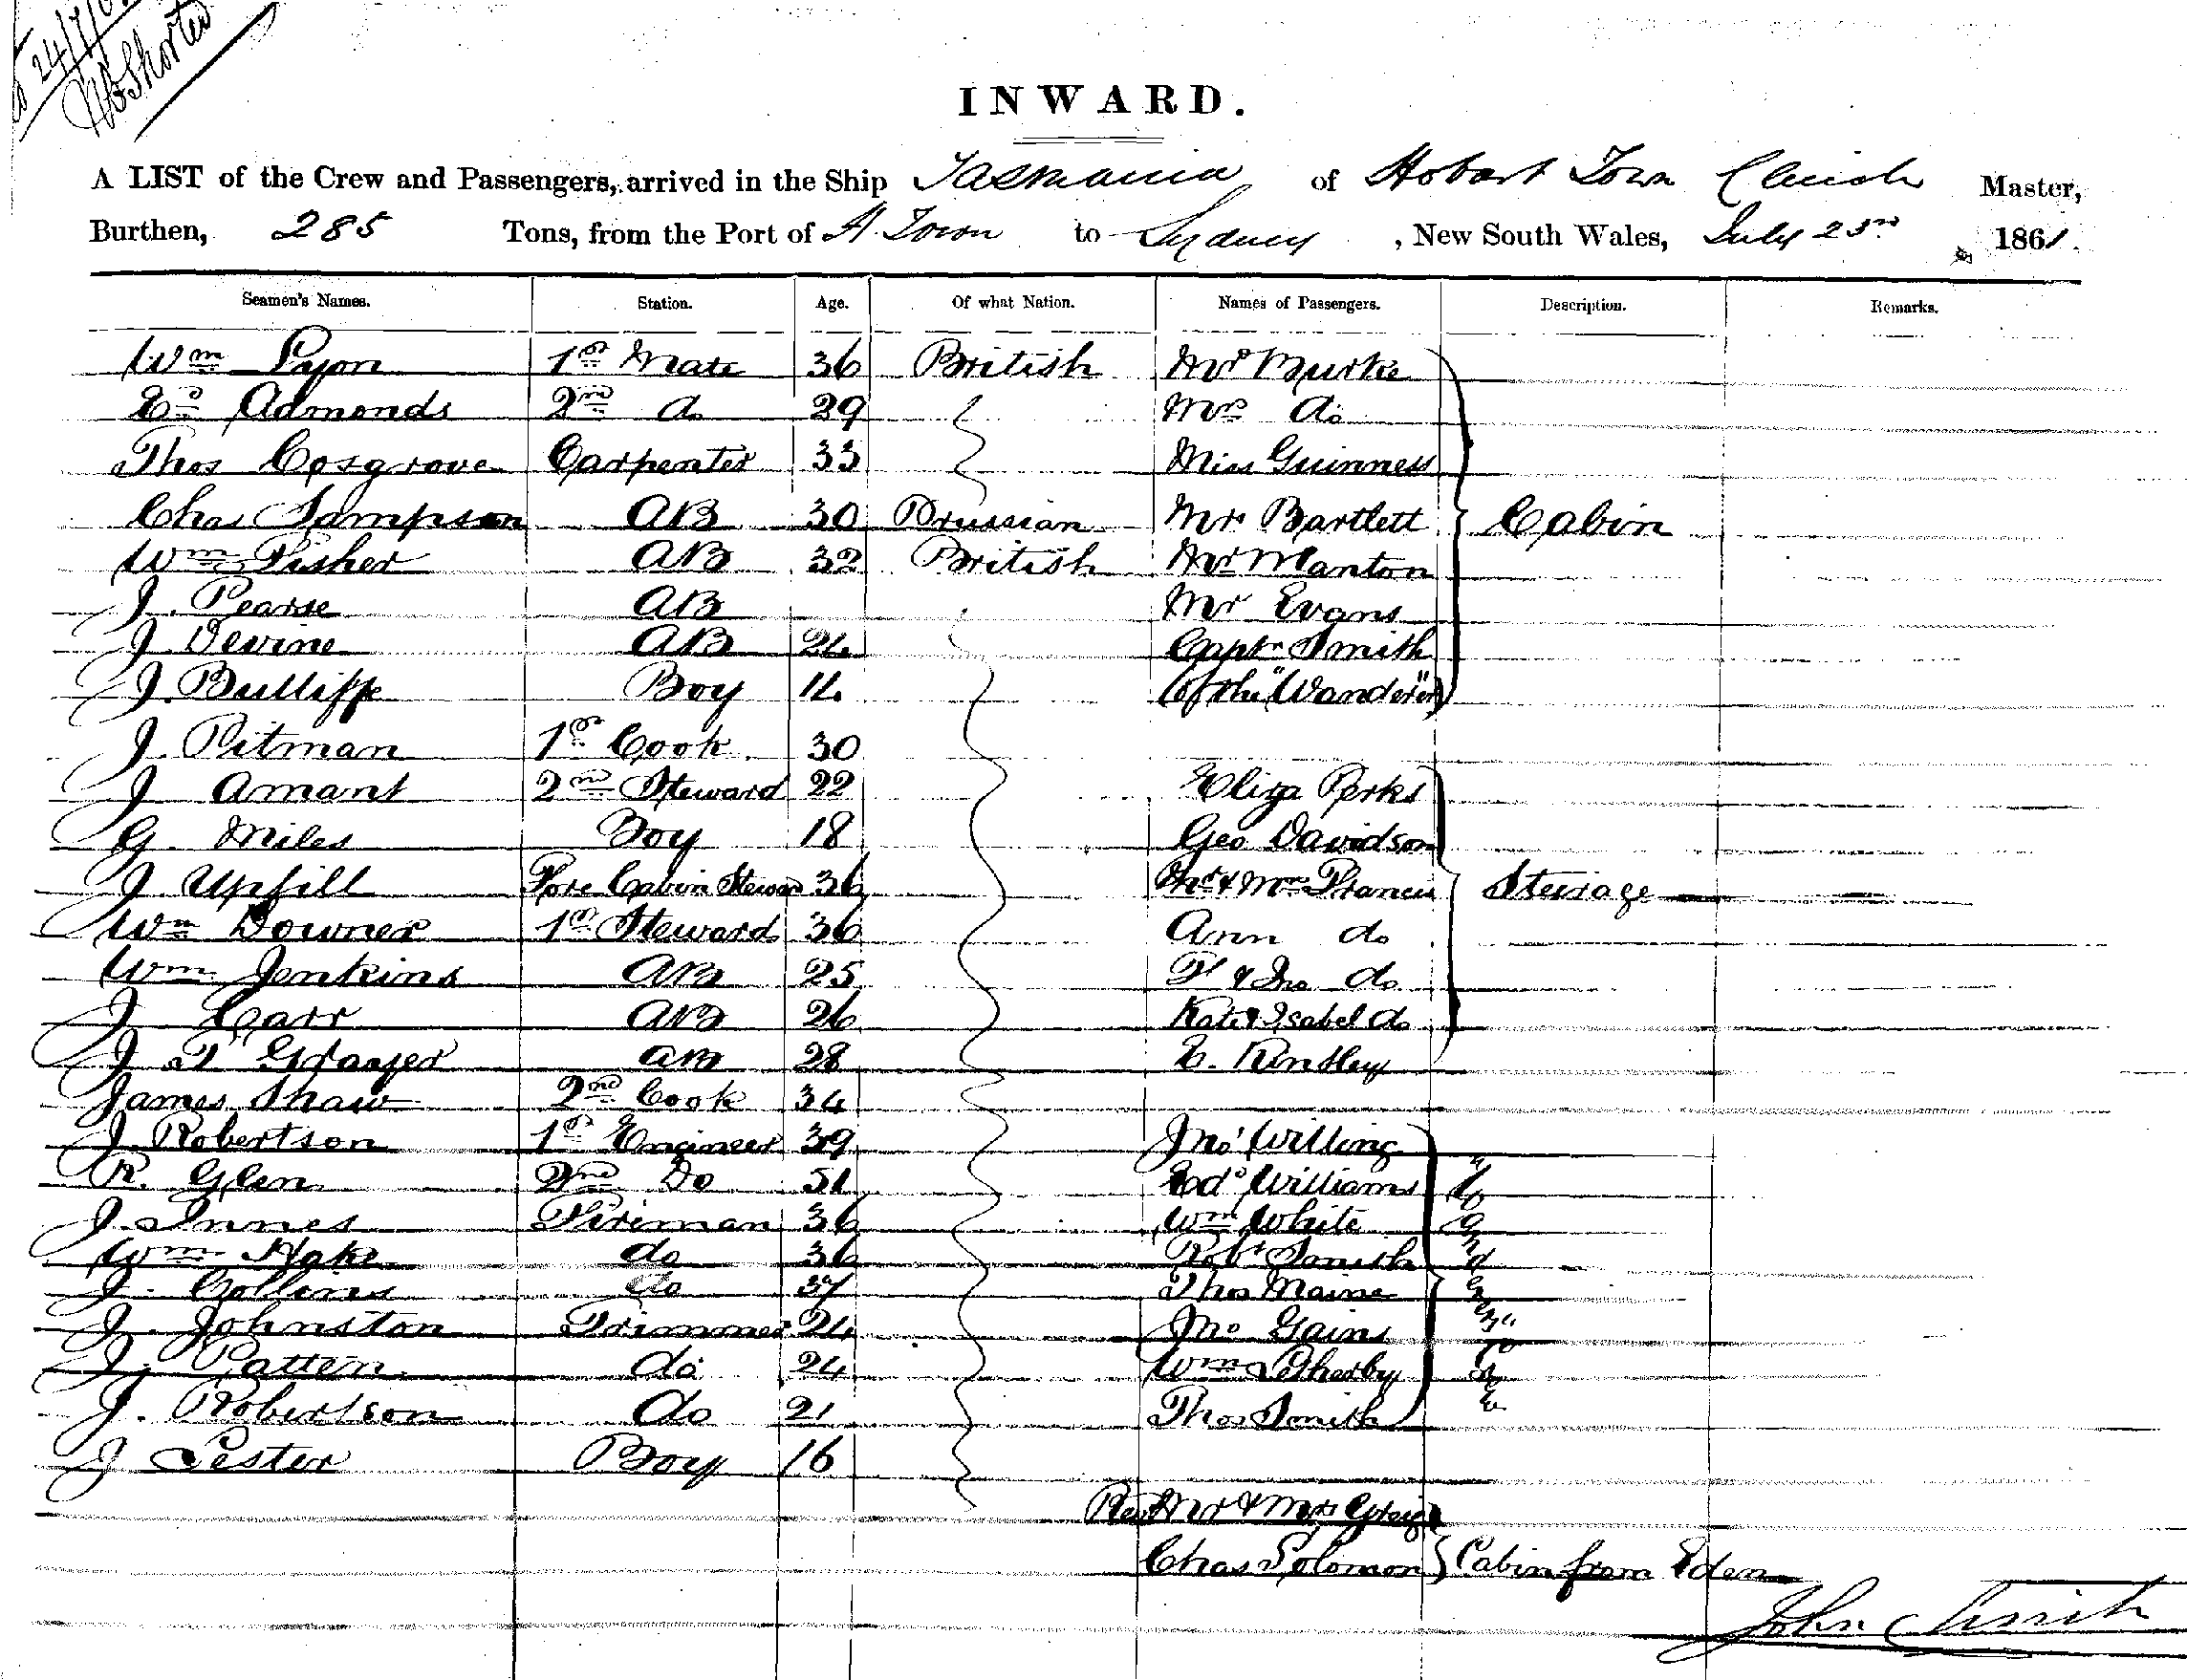 24/7/61
Shorted
INWARD.
A LIST of the Crew and Passengers, arrived in the Ship Tasmania of Hobart Town Clinch Master,
Burthen, 285 Tons, from the Port of H. Town to Sydney, New South Wales, July 23rd 1861.
Seamen's Names. Station. Age. Of what Nation. Names of Passengers. Description. Remarks.
Wm 1st Mate 36 British Mr Burke
Ed Admonds 2nd do 29 Mrs do
Thos Cosgrove Carpenter 33 Miss Guinness
Chas Sampson AB 30 Prussian Mr Bartlett Cabin
Wm Fisher AB 32 British Mr Manton
J. Pearse AB Mr Evans
J Devine AB 24 Captn Smith
J. Butliffe Boy 14 (of the "Wanderer")
J. Pitman 1st Cook 30
J Amant 2nd Steward 22 Eliza Perks
G. Miles Boy 18 Geo Davidson
J Upfill Fore Cabin Steward 36 Mr & Mrs Francis Steerage
Wm Downer 1st Steward 36 Ann do
Wm Jenkins AB 25 F & Jno do
J Carr AB 26 Kate & Isabel do
J T Graager AB 28 E.
James Shaw 2nd Cook 34
J Robertson 1st Engineer 39 Jno Willing
R. Glen 2nd Do 51 Edd Williams
J. Innes Fireman 36 Wm White
Wm Hake do 36 Robt Smith
J. Collins do 37 Thos Maine
J. Johnston Trimmer 24 Jno Gains
J. Patten do 24 Wm Letherby
J. Robertson do 21 Thos Smith
J Lester Boy 16
Rev Mr & Mrs Greig
Chas Solomon Cabin from Eden
John Clinch